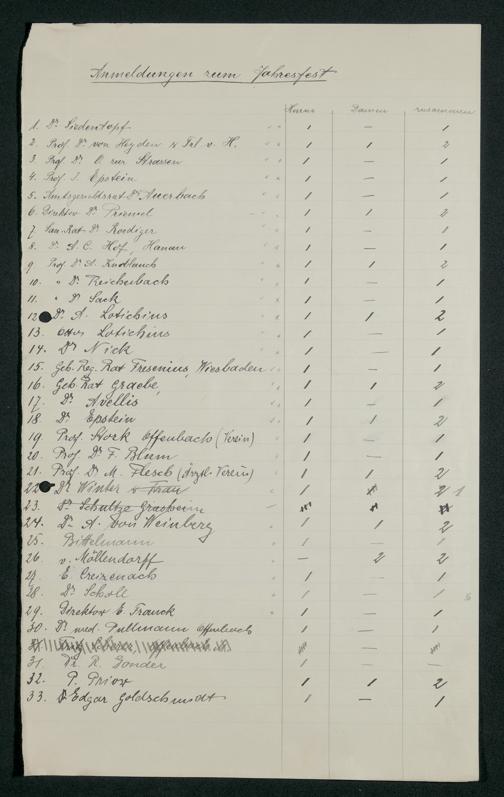 Anmeldungen zum Jahresfest
Herren Damen zusammen
1. Dr Siedentopf " " 1 — 1
2. Prof Dr von Heyden u Frl. v. H. " " 1 1 2
3. Prof. Dr. O. zur Strassen " " 1 — 1
4. Prof. J. Epstein " " 1 — 1
5. Amtsgerichtsrat Dr Auerbach 1 — 1
6. Direktor Dr 1 1 2
7 San.-Rat Dr Roediger " " 1 — 1
8. Dr A. C. Hof, Hanau " " 1 — 1
9 Prof Dr A. Knoblauch " " 1 1 2
10. " Dr. Reichenbach " " 1 — 1
11. " Dr Sack " " 1 — 1
12 Dr. A. Lotichius " " 1 1 2
13. Lotichius " " 1 — 1
14. Dr Nick " " 1 — 1
15. Geh. Reg. Rat Fresenius, Wiesbaden 1 — 1
16. Geh. Rat Graebe, " " 1 1 2
17. Dr. Avellis " " 1 — 1
18 Dr. Epstein " " 1 1 2
19 Prof. Stork Offenbach (Verein) 1 — 1
20. Prof. Dr F. Blum " " 1 — 1
21. Prof. Dr M. Flesch (Ärztl. Verein) 1 1 2
22 Dr Winter u Frau 1 1 2 1
23. Dr. Schultze —
24. Dr. A. von Weinberg 1 1 2
25. 1 — 1
26 v. Möllendorff — 2 2
27. E. Creizenach 1 — 1
28. Dr Scholl 1 — 1
29. Direktor E. Franck 1 — 1
30. Dr med. Pullmann Offenbach 1 — 1
31. Dr. R. Gonder 1 — —
32. P. Prior 1 1 2
33. Dr Edgar Goldschmidt 1 — 1